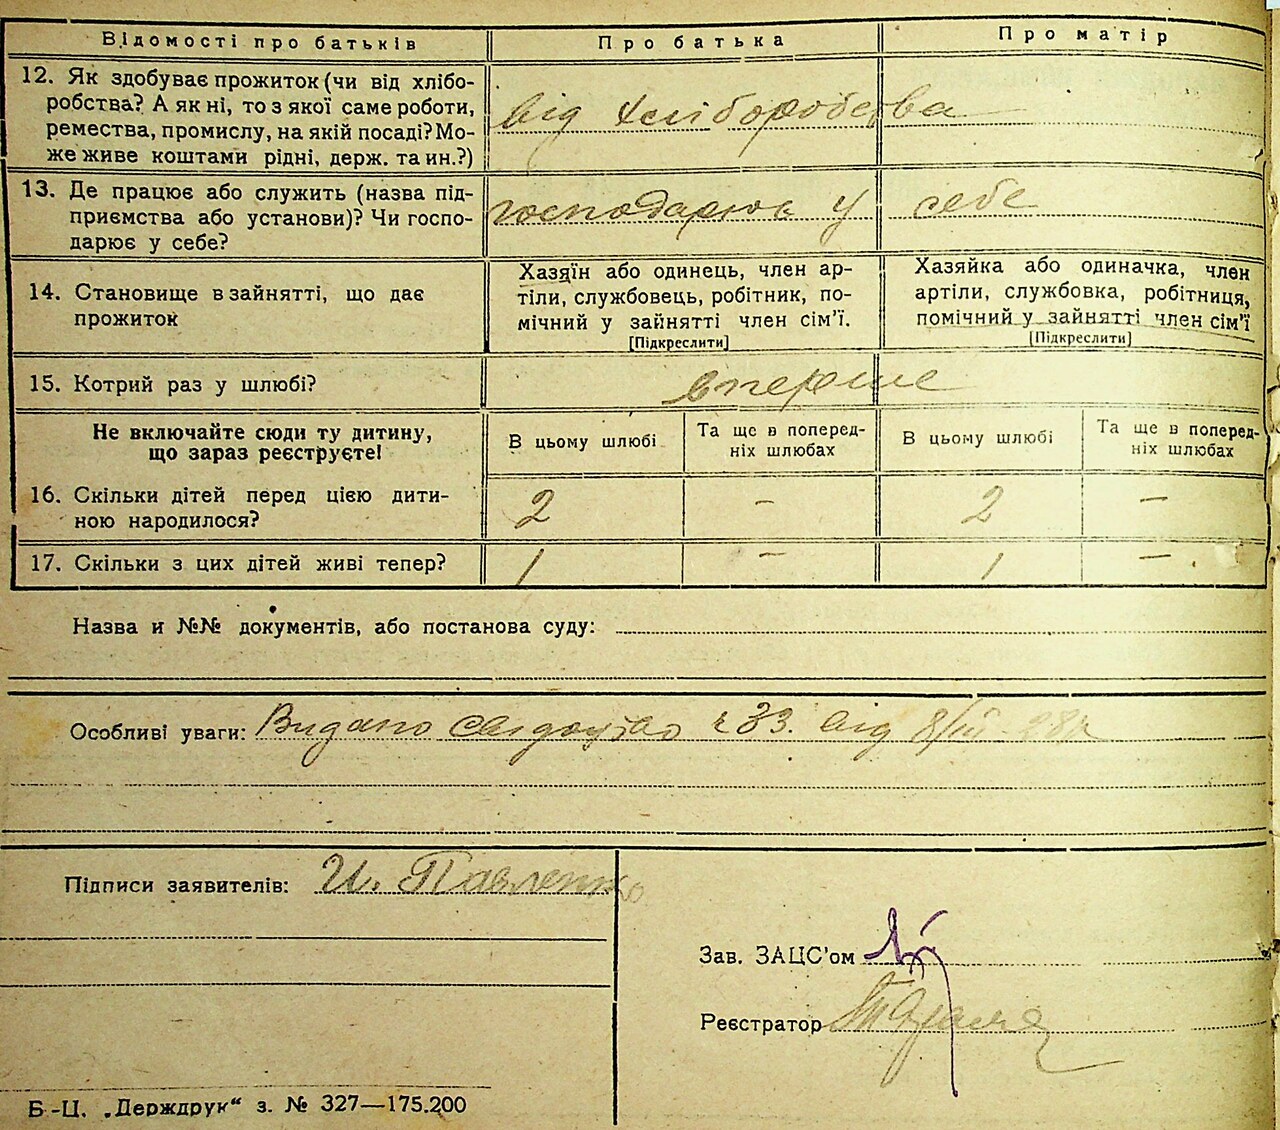 Відомості про батьків
Про батька
Про матір
12. Як здобуває прожиток (чи від хлібо-
робства? А як ні, то з якої саме роботи,
ремества, промислу, на якій посаді? Мо-
же живе коштами рідні, держ. та ин.?)
від хліборобства
13. Де працює або служить (назва під-
приємства або установи)? Чи госпо-
дарює у себе?
господарює у себе
14. Становище в зайнятті, що дає
прожиток
Хазяїн або одинець, член ар-
тіли, службовець, робітник, по-
мічний у зайнятті член сім’ї.
[Підкреслити]
Хазяйка або одиначка, член
артіли, службовка, робітниця,
помічний у зайнятті член сім’ї
[Підкреслити]
15. Котрий раз у шлюбі?
вперше
Не включайте сюди ту дитину,
що зараз реєструєте!
В цьому шлюбі
Та ще в поперед-
ніх шлюбах
В цьому шлюбі
Та ще в поперед-
ніх шлюбах
16. Скільки дітей перед цією дити-
ною народилося?
2 – 2 –
17. Скільки з цих дітей живі тепер?
1 – 1 –
Назва и №№ документів, або постанова суду:
Особливі уваги: Видано свідоцтво ч 33. від 8/III-28р
Підписи заявителів: И. Павленко
Зав. ЗАЦС’ом
Реєстратор
Б-Ц. „Держдрук“ з. № 327—175.200